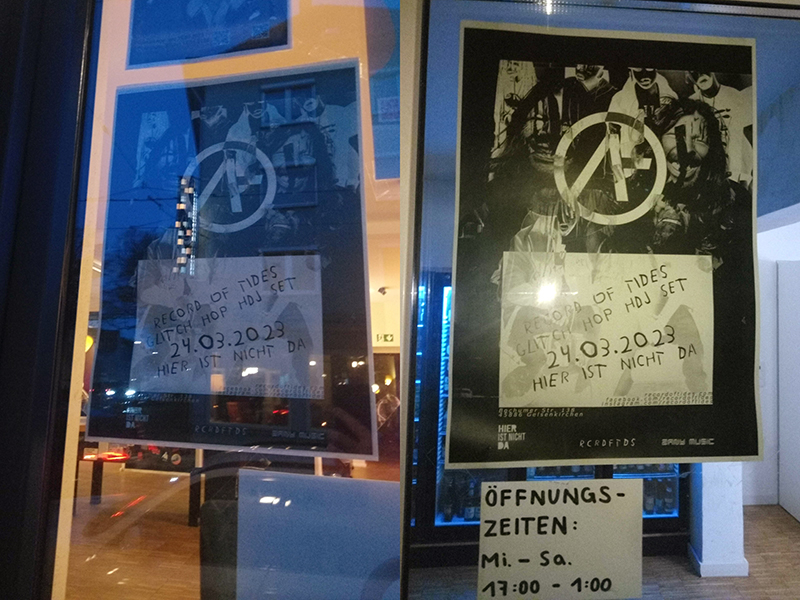 RECORD OF TIDES
GLITCH HOP HDJ SET
24.03.2023
HIER IST NICHT DA
RECORD OF TIDES
GLITCH HOP HDJ SET
24.03.2023
HIER IST NICHT DA
HIER
IST NICHT
DA
RCRDFTDS
BRNY MUSIC
ÖFFNUNGS-
ZEITEN:
Mi. - Sa.
17:00 - 1:00